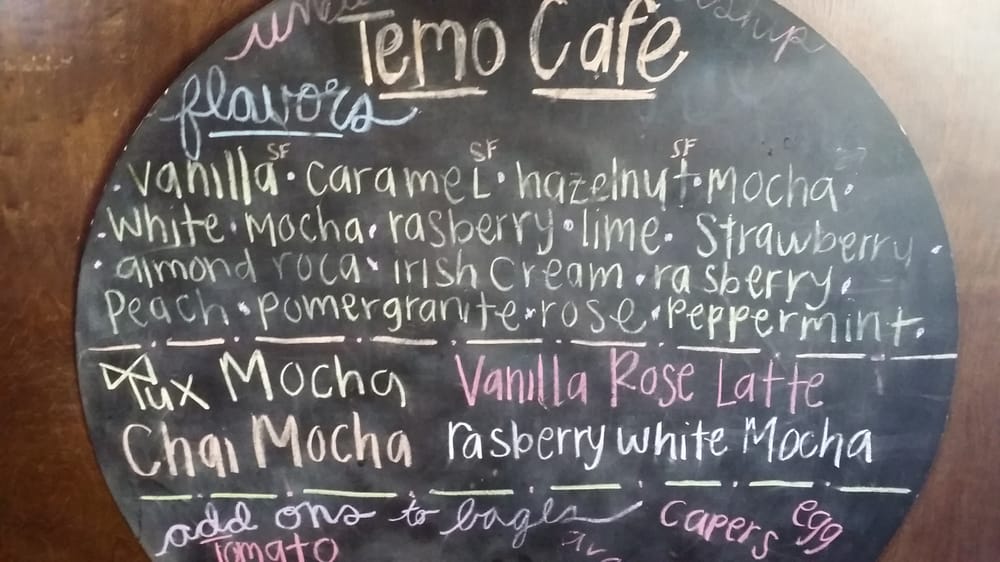 Temo Café
flavors
SF SF SF
·vanilla·caramel·hazelnut·Mocha·
·White·Mocha·rasberry·lime·Strawberry·
·almond roca·irish Cream·rasberry·
Peach·pomergranite·rose·Peppermint·
Tux Mocha Vanilla Rose Latte
Chai Mocha rasberry white Mocha
add ons to bagels capers egg
Tomato